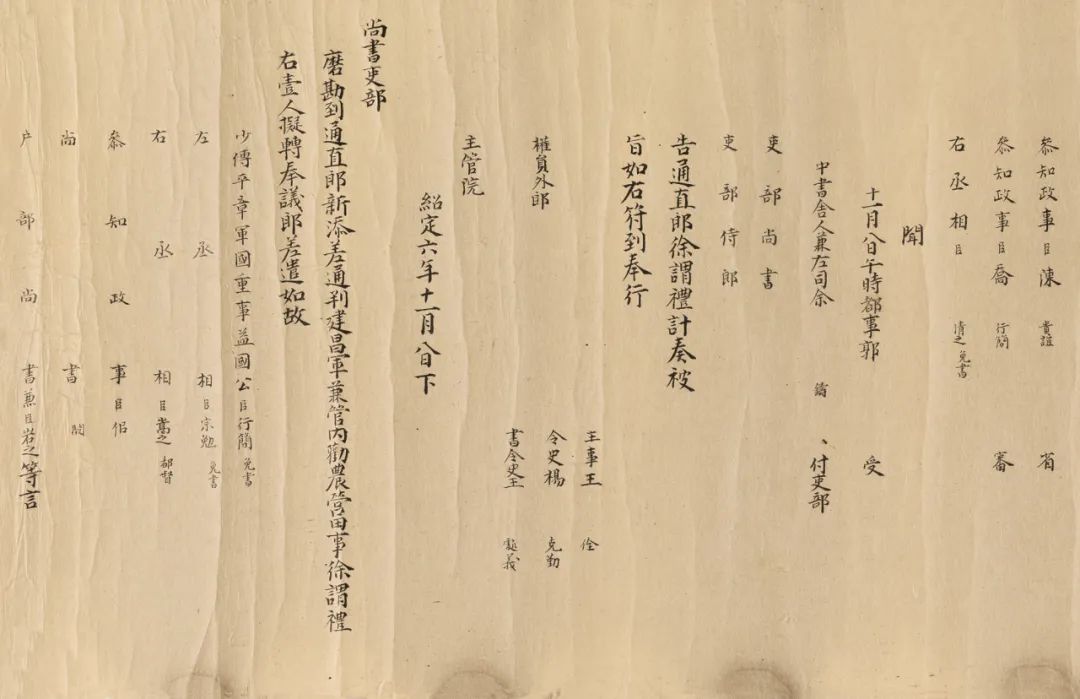 參知政事臣陳 貴誼 省
參知政事臣喬 行簡 審
右丞相臣 清之 免書
聞
十一月八日午時都事郭 受
中書舍人兼左司余 鑄 、付吏部
吏部尚書
吏部侍郎
告通直郎徐謂禮計奏被
旨如右符到奉行
主事王 佺
權員外郎 令史楊 克勤
書令史王 龍義
主管院
紹定六年十一月八日下
尚書吏部
磨勘到通直郎新添差通判建昌軍兼管內勸農營田事徐謂禮
右壹人擬轉奉議郎差遣如故
少傅平章軍國重事益國公臣行簡 免書
左丞相臣宗勉 免書
右丞相臣嵩之 都督
參知政事臣侣
尚書 闕
戶部尚書兼臣岩之等言